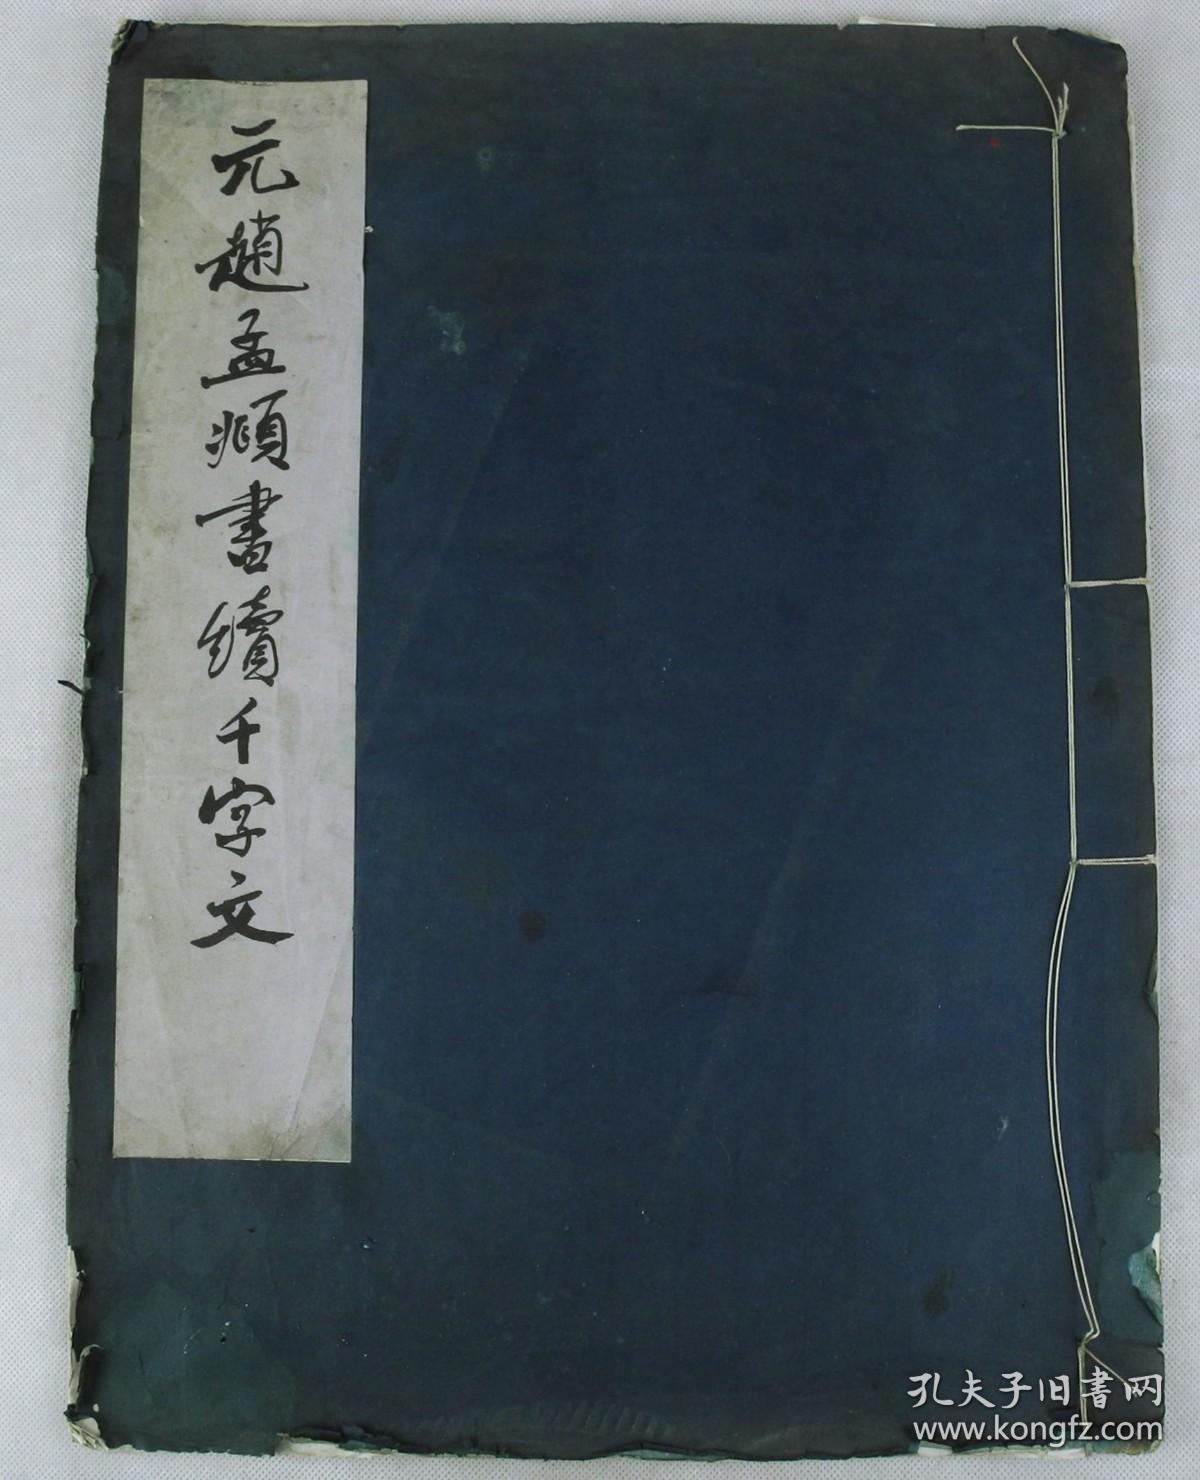 元趙孟頫書續千字文
孔夫子旧書网
www.kongfz.com